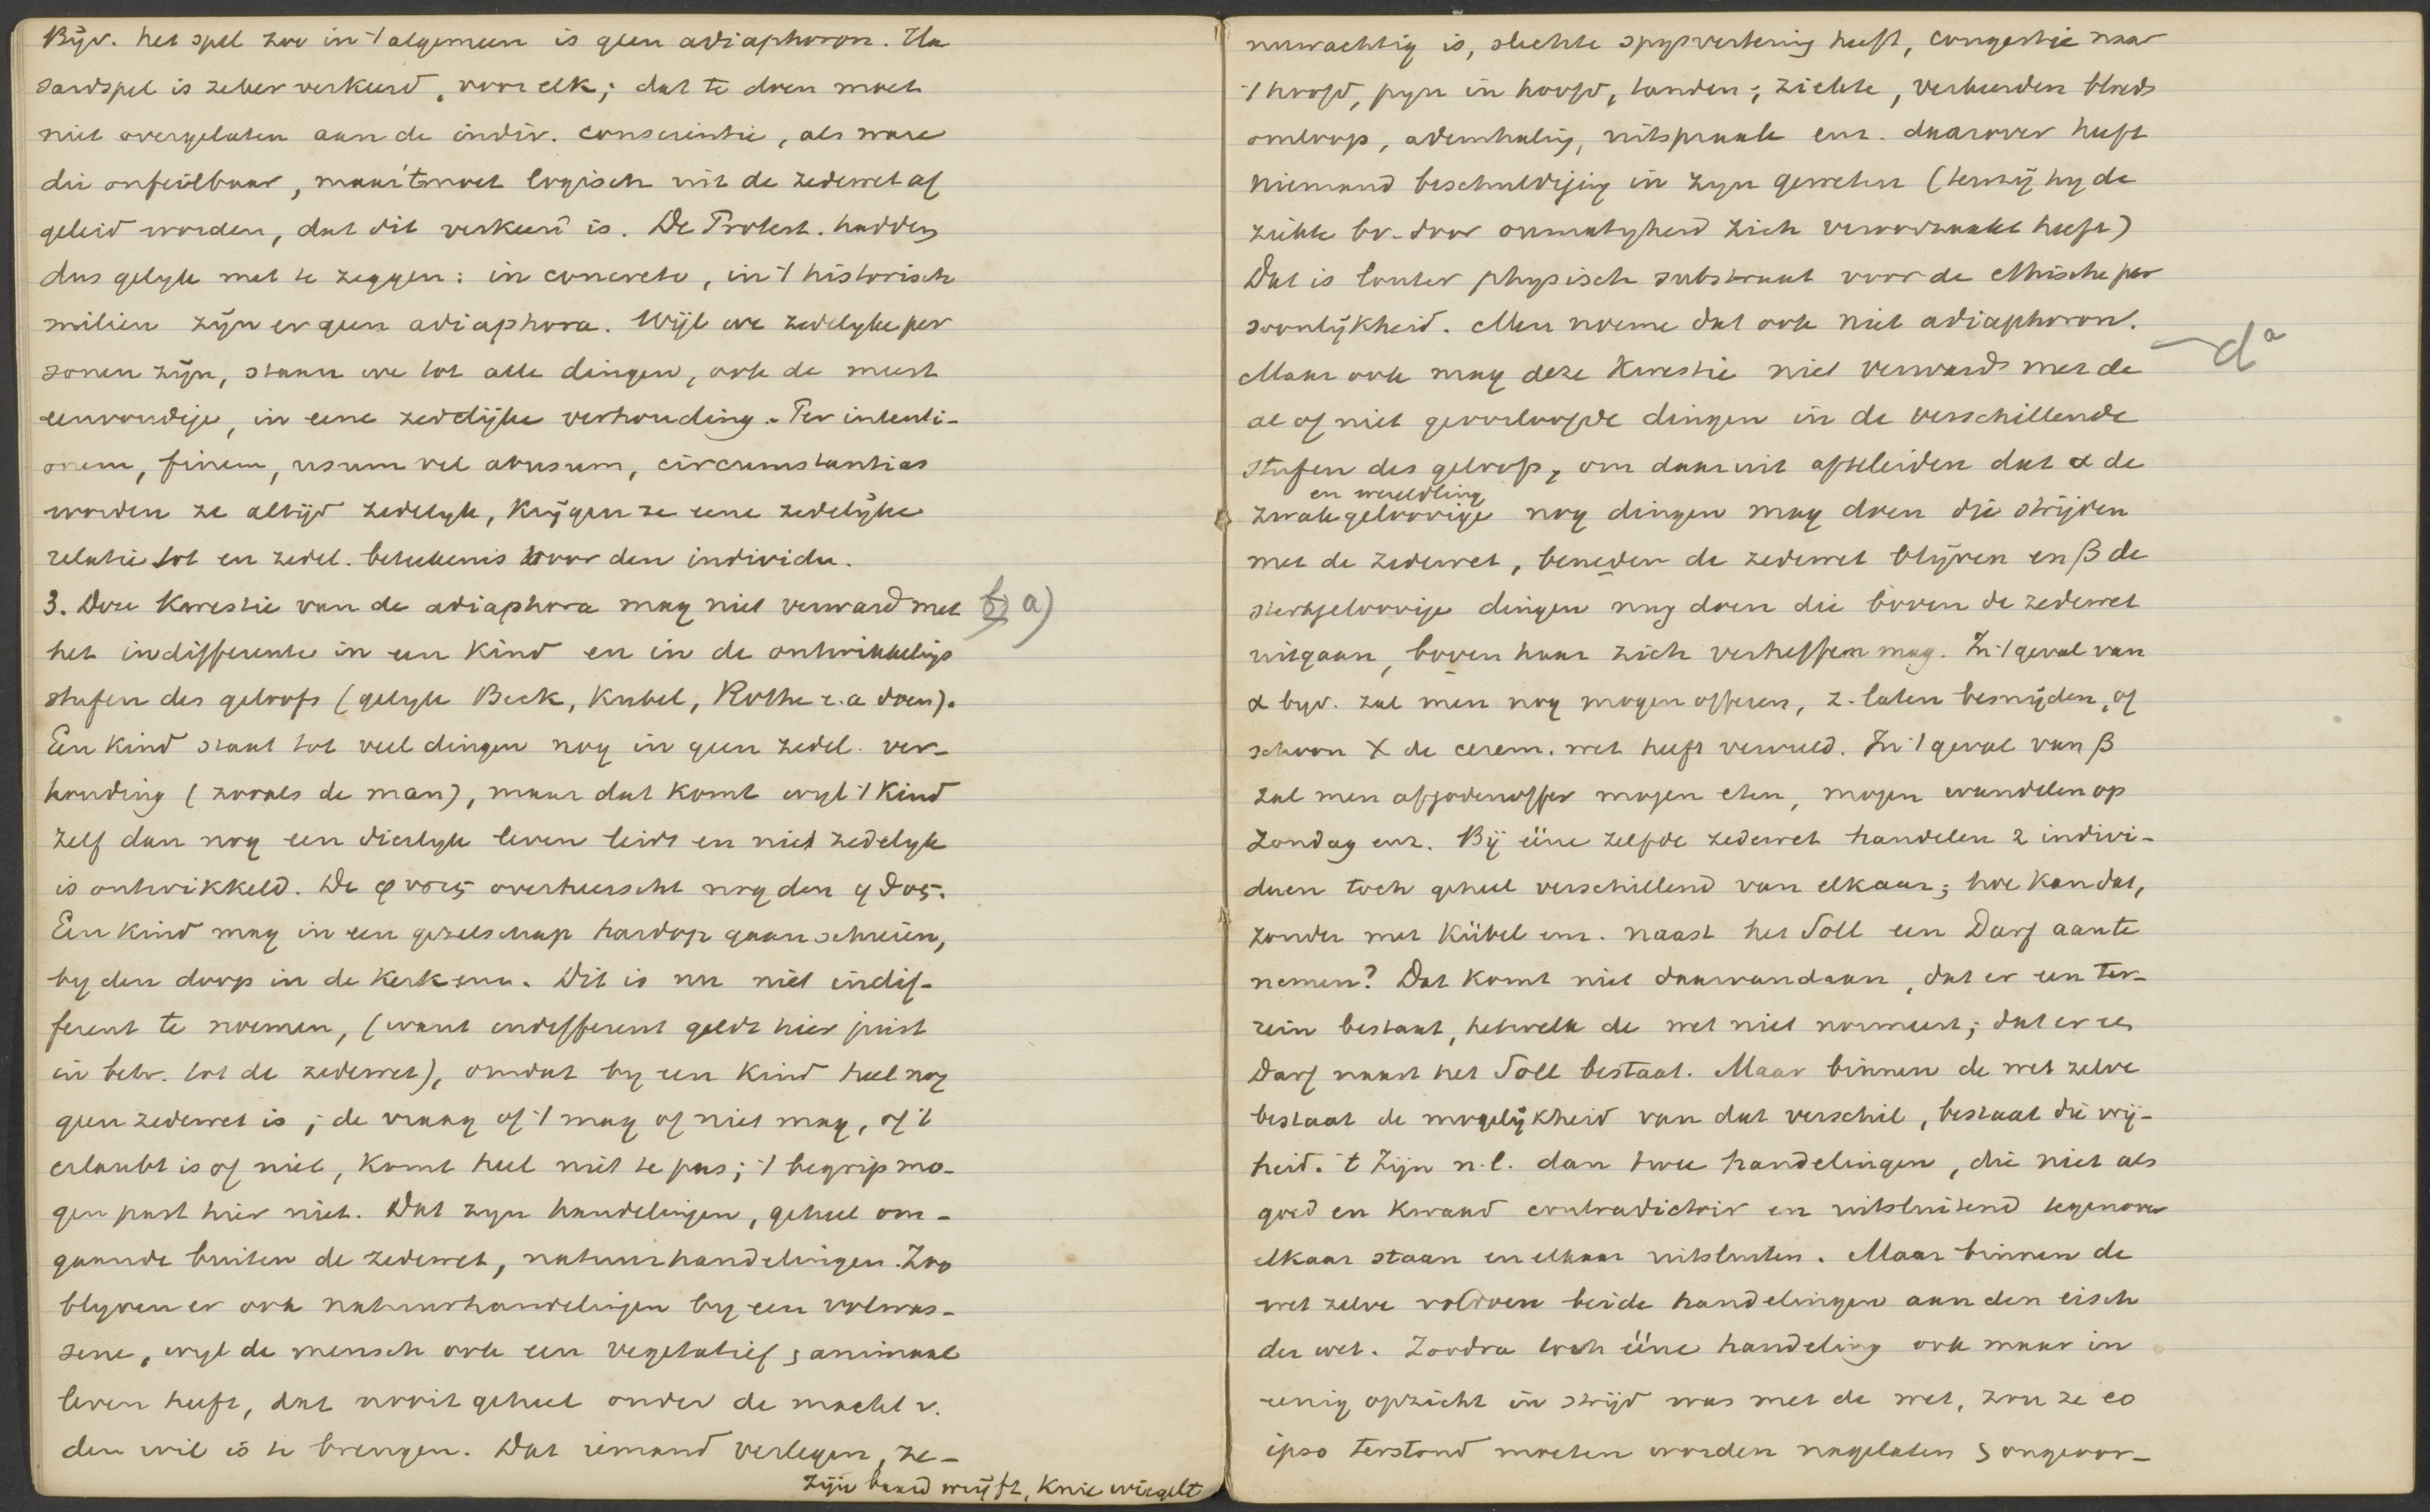 Bijv. het spel zoo in 't algemeen is geen adiaphoron. Ha
sardspel is zeker verkeerd, voor elk; dat te doen moet
niet overgelaten aan de indiv. conscientie, als ware
die onfeilbaar, maar 't moet logisch uit de zedewet af
geleid worden, dat dit verkeerd is. De Protest. hadden
dus gelyk met te zeggen: in concreto, in 't historisch
milieu zijn er geen adiaphora. Wijl we zedelyke per
sonen zijn, staan we tot alle dingen, ook de meest
eenvoudige, in eene zedelijke verhouding. Per intenti-
onem, finem, usum vel abusum, circumstantias
worden ze altijd zedelyk, krijgen ze eene zedelijke
relatie tot en zedel. beteekenis voor den individu.
3. Deze kwestie van de adiaphora mag niet verward met b) a)
het indifferente in een kind en in de ontwikkelings
stufen des geloofs (gelyk Beck, Kubel, Rothe e.a doen).
Een kind staat tot veel dingen nog in geen zedel. ver-
houding (zooals de man), maar dat komt wyl 't kind
zelf dan nog een dierlyk leven leidt en niet zedelyk
is ontwikkeld. De φυσις overheerscht nog den ηθος.
Een kind mag in een gezelschap hardop gaan schreien,
by den doop in de kerk enz. Dit is nu niet indif-
ferent te noemen, (want indifferent geldt hier juist
in betr. tot de zedewet), omdat by een kind heel nog
geen zedewet is; de vraag of 't mag of niet mag, of 't
erlaubt is of niet, komt heel niet te pas; 't begrip mo-
gen past hier niet. Dat zyn handelingen, geheel om-
gaande buiten de zedewet, natuurhandelingen. Zoo
blyven er ook natuurhandelingen by een volwas-
sene, wyl de mensch ook een vegetatief, animaal
leven heeft, dat nooit geheel onder de macht v.
den wil is te brengen. Dat iemand verlegen, ze-
zijn baard wrijft, knie wiegelt
nuwachtig is, slechte spysvertering heeft, congestie naar
't hoofd, pyn in hoofd, tanden; ziekte, verkeerden bloeds
omloop, ademhaling, uitspraak enz. daarover heeft
niemand beschuldiging in zyn geweten (tenzij hy de
ziekte bv. door onmatigheid zich veroorzaakt heeft)
Dat is louter physisch substraat voor de ethische per
soonlijkheid. Men noeme dat ook niet adiaphoron.
Maar ook mag deze kwestie niet verward met de dª
al of niet geoorloofde dingen in de verschillende
stufen des geloofs, om daaruit afteleiden dat α de
en wereldling
zwakgeloovige nog dingen mag doen die strijden
met de zedewet, beneden de zedewet blijven en β de
sterkgeloovige dingen mag doen die boven de zedewet
uitgaan, boven haar zich verheffen mag. In 't geval van
α byv. zal men nog mogen offeren, z. laten besnijden, of
schoon X de cerem. wet heeft vervuld. In 't geval van β
zal men afgodenoffer mogen eten, mogen wandelen op
Zondag enz. Bij ééne zelfde zedewet handelen 2 indivi-
duen toch geheel verschillend van elkaar; hoe kan dat,
zonder met Kübel enz. naast het Soll een Darf aan te
nemen? Dat komt niet daarvandaan, dat er een ter-
rein bestaat, hetwelk de wet niet normeert; dat er een
Darf naast het Soll bestaat. Maar binnen de wet zelve
bestaat de mogelijkheid van dat verschil, bestaat die vrij-
heid. 't Zijn n.l. dan twee handelingen, die niet als
goed en kwaad contradictoir en uitsluitend tegenover
elkaar staan en elkaar uitsluiten. Maar binnen de
wet zelve voldoen beide handelingen aan den eisch
der wet. Zoodra toch ééne handeling ook maar in
eenig opzicht in strijd was met de wet, zou ze eo
ipso terstond moeten worden nagelaten, ongeoor-